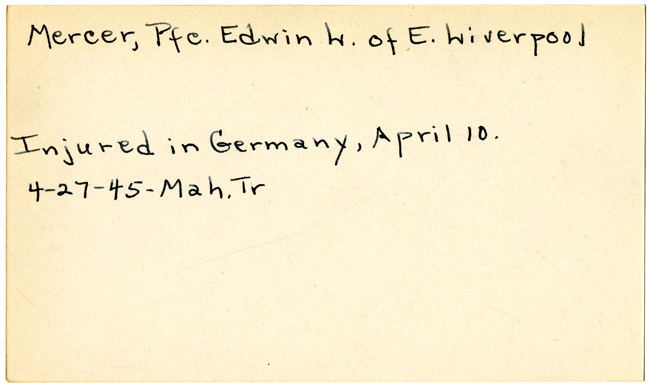 Mercer, Pfc. Edwin L. of E. Liverpool
Injured in Germany, April 10.
4-27-45-Mah. Tr